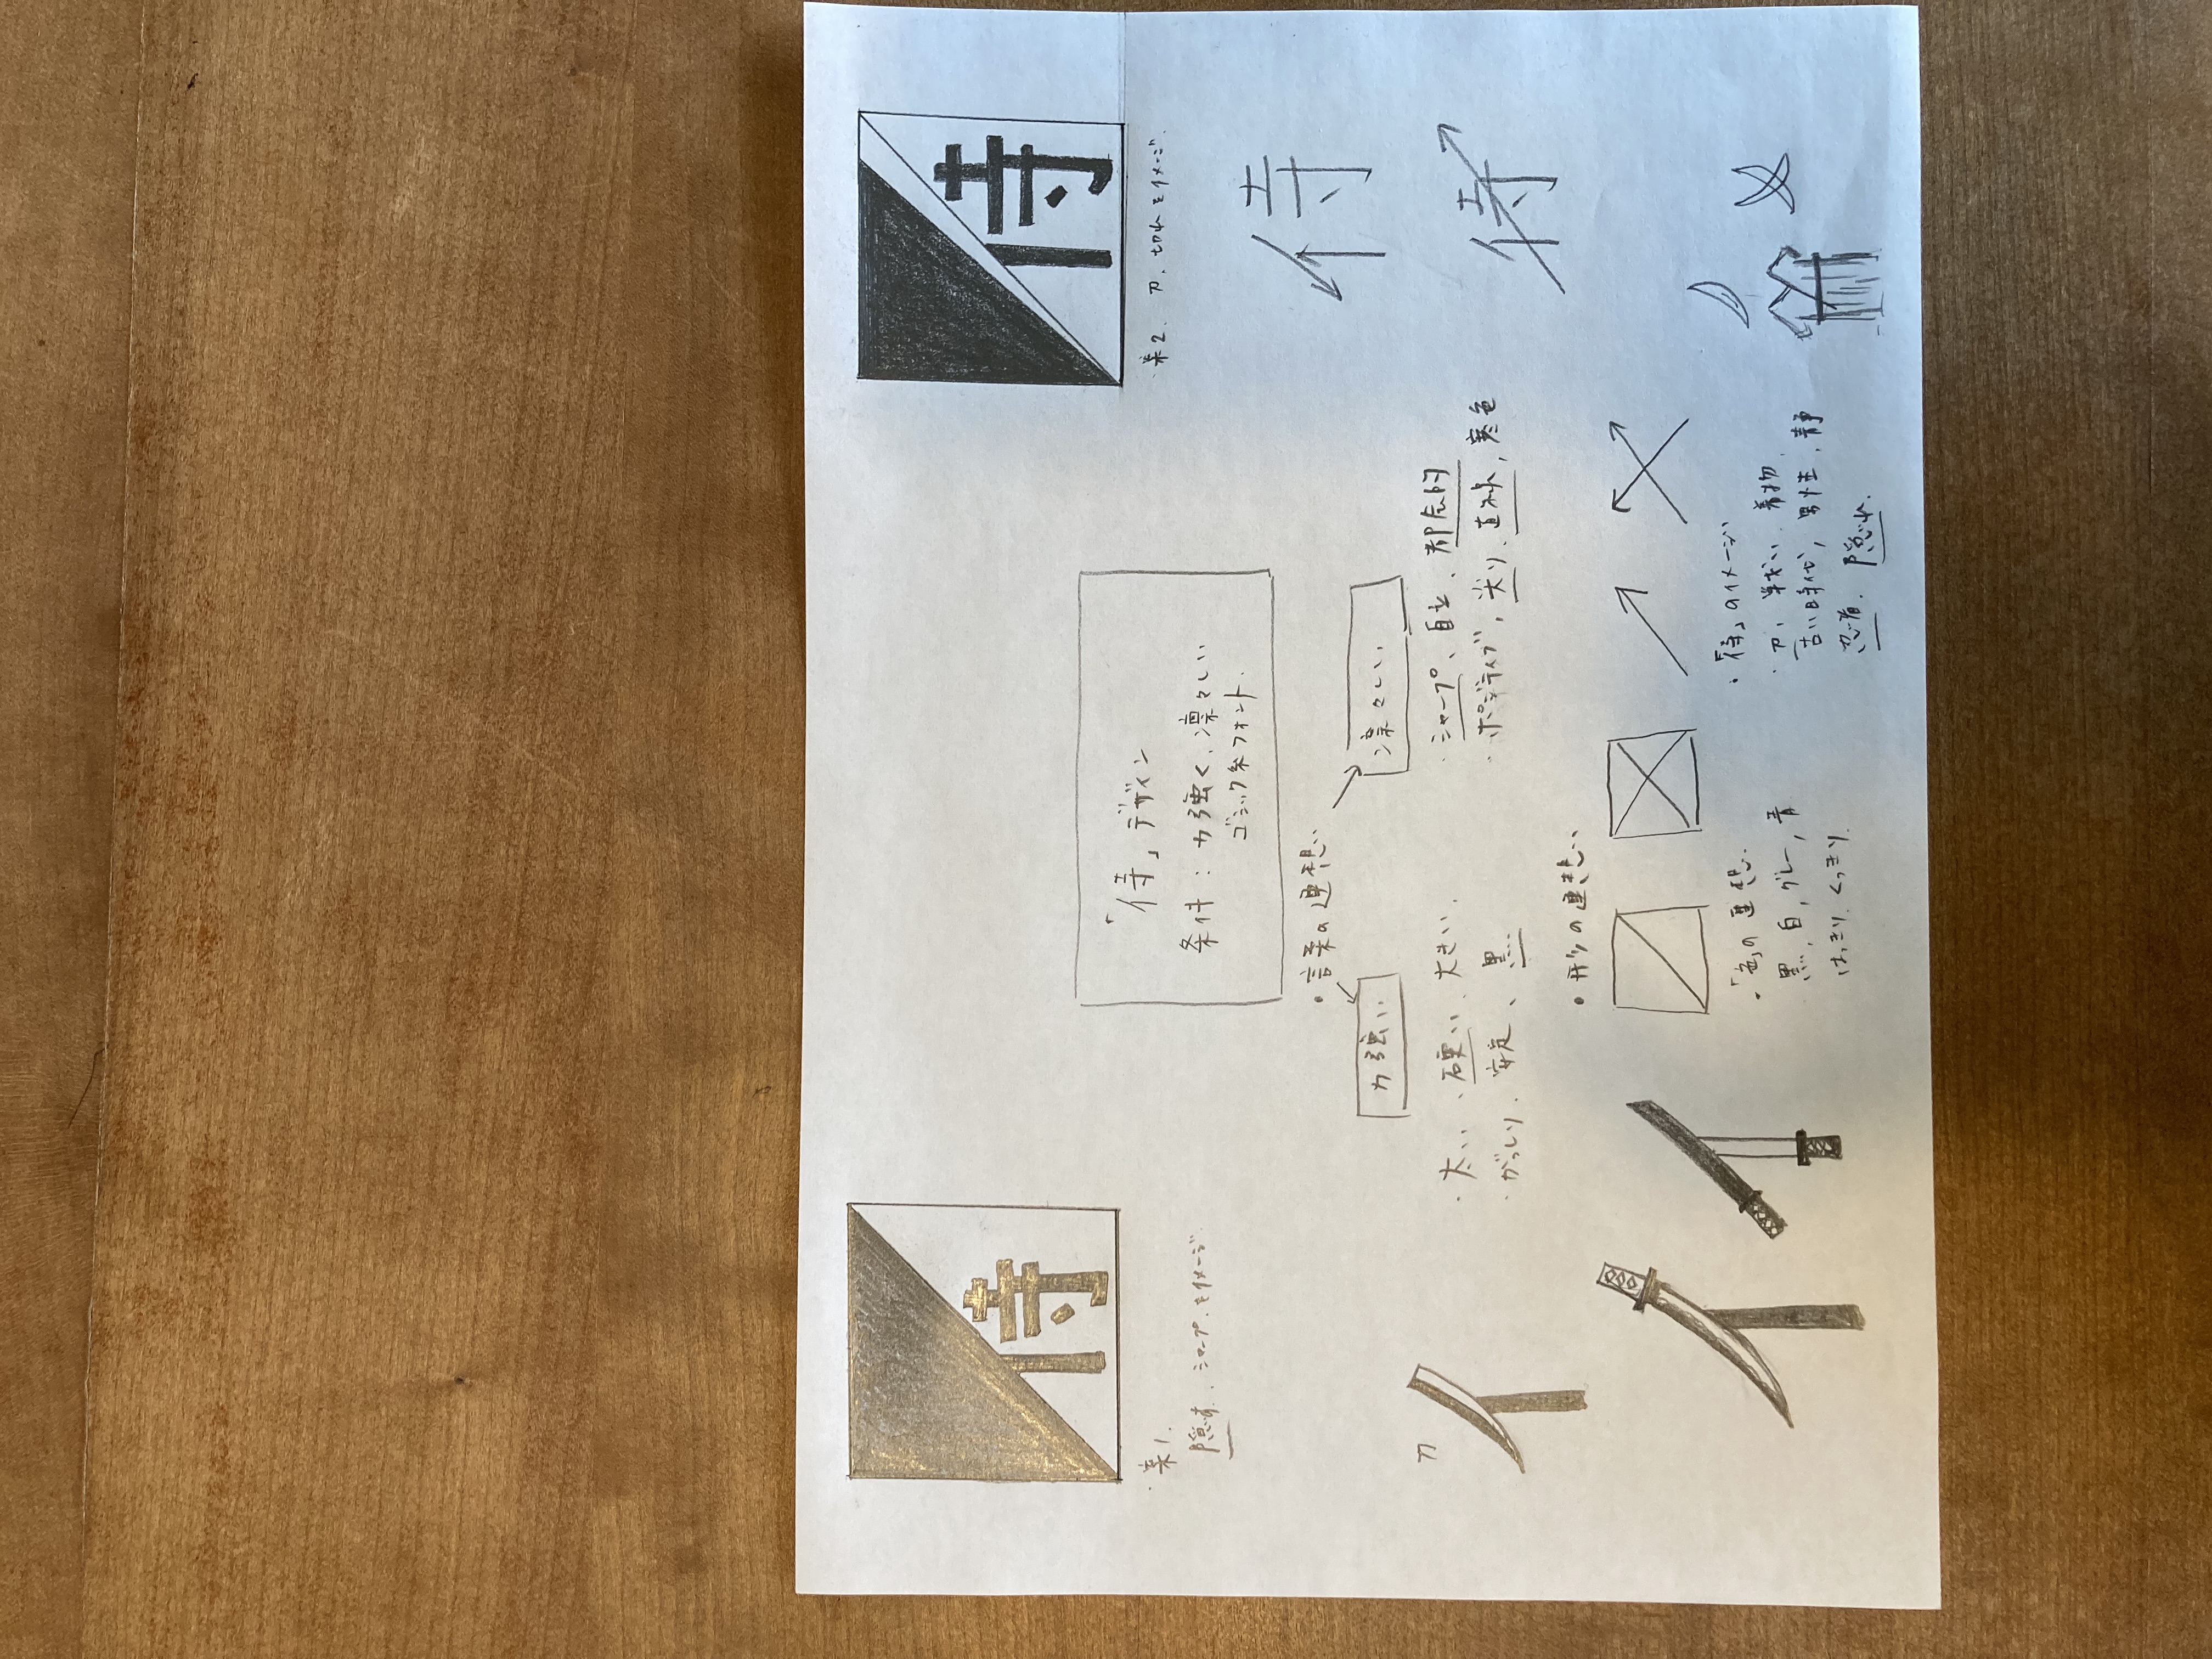 侍
侍
案1.
隠す、シャープ、をイメージ
案2. 刀、切れをイメージ.
「侍」デザイン
条件：力強く、凛々しい
ゴシック系フォント.
・言葉の連想
力強い
凛々しい
・太い、硬い、大きい、
・がっしり、安定、黒
・シャープ、自立、都会的
・ポジティブ、尖り、直線、寒色
侍
侍
刀
イ
・形の連想
・「色」の連想.
黒、白、グレー、青
はっきり、くっきり
・「侍」のイメージ
・刀、戦い、着物、
古い時代、男性、静
忍者、隠れ.